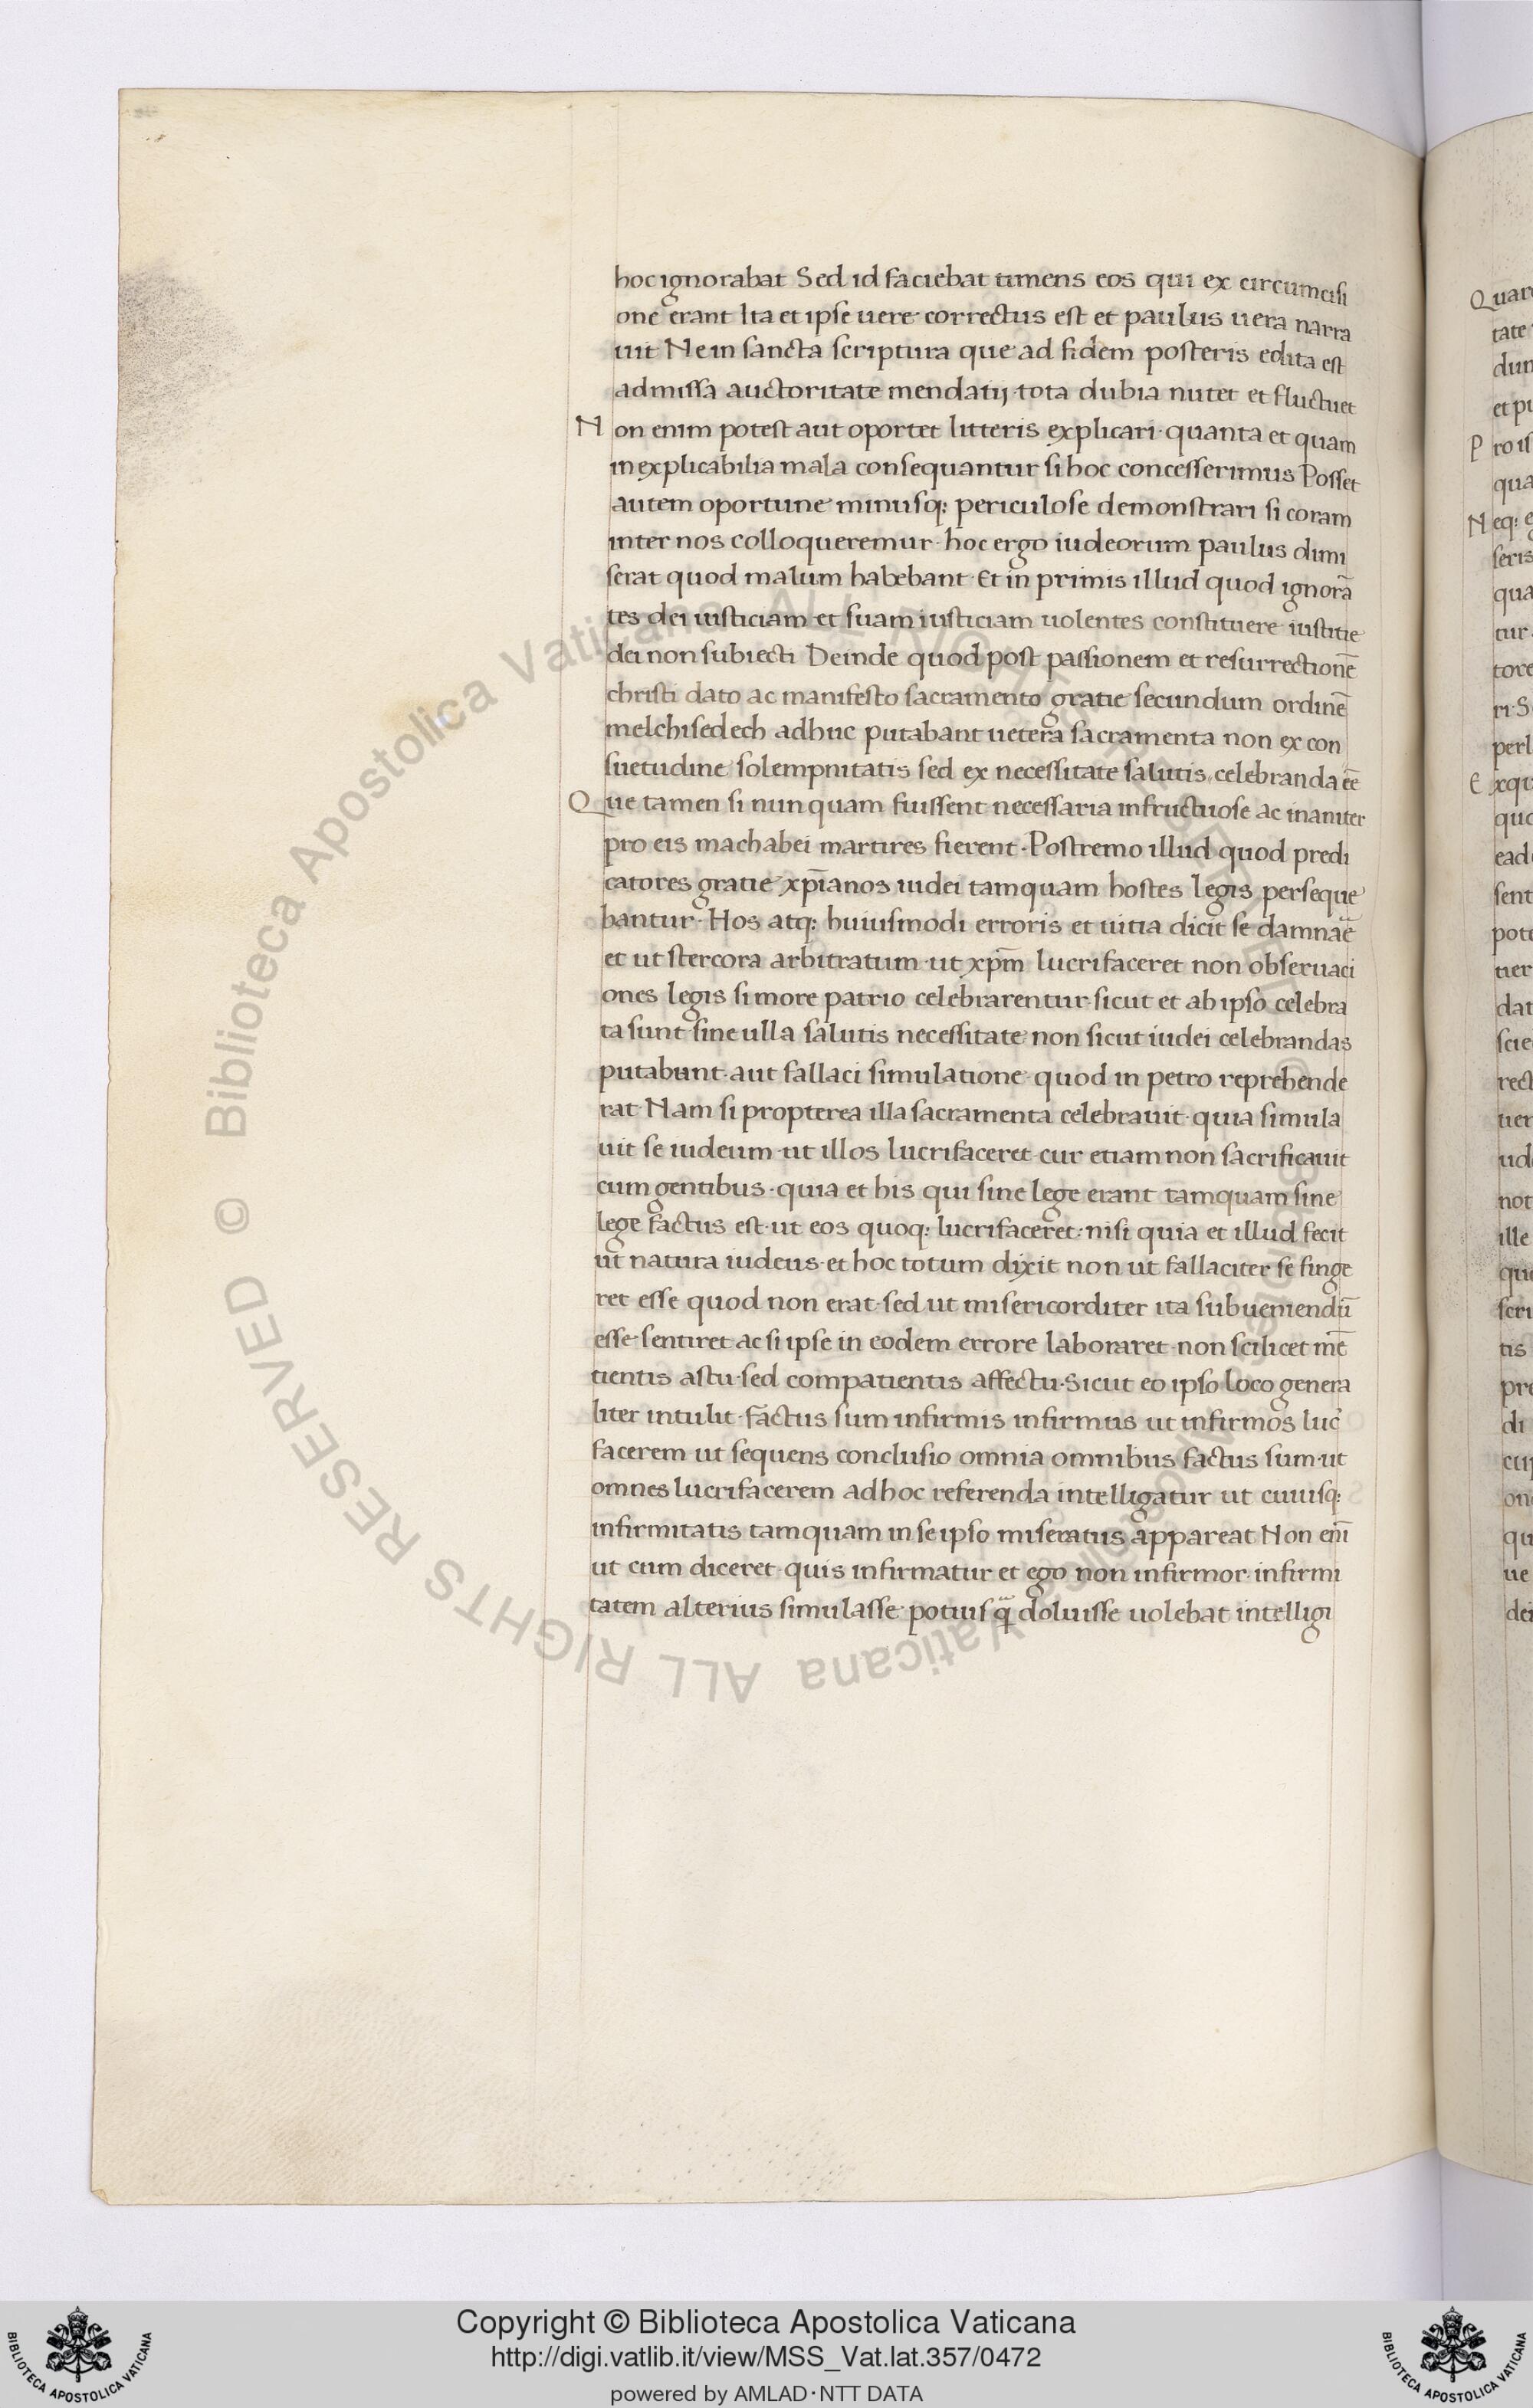 hoc ignorabat Sed id faciebat timens eos qui ex circumcisi
one erant Ita et ipse uere correctus est et paulus uera narra
uit Ne in sancta scriptura que ad fidem posteris edita est
admissa auctoritate mendatij tota dubia nutet et fluctuet
Non enim potest aut oportet litteris explicari· quanta et quam
inexplicabilia mala consequantur si hoc concesserimus Posset
autem oportune minusq: periculose demonstrari si coram
inter nos colloqueremur· hoc ergo iudeorum paulus dimi
serat quod malum habebant Et in primis illud quod ignorā
tes dei iusticiam et suam iusticiam uolentes constituere iustitie
dei non subiecti Deinde quod post passionem et resurrectionē
christi dato ac manifesto sacramento gratie secundum ordinē
melchisedech adhuc putabant uetera sacramenta non ex con
suetudine solempnitatis sed ex necessitate salutis celebranda eē
Que tamen si nunquam fuissent necessaria infructuose ac inaniter
pro eis machabei martires fierent· Postremo illud quod predi
catores gratie xp̄ianos iudei tamquam hostes legis perseque
bantur· Hos atq: huiusmodi erroris et uitia dicit se damnaē
et ut stercora arbitratum ut xp̄m lucrifaceret non obseruaci
ones legis si more patrio celebrarentur sicut et ab ipso celebra
ta sunt sine ulla salutis necessitate non sicut iudei celebrandas
putabunt· aut fallaci simulatione· quod in petro reprehende
rat Nam si propterea illa sacramenta celebrauit· quia simula
uit se iudeum ut illos lucrifaceret cur etiam non sacrificauit
cum gentibus· quia et his qui sine lege erant tamquam sine
lege factus est· ut eos quoq: lucrifaceret· nisi quia et illud fecit
ut natura iudeus· et hoc totum dixit non ut fallaciter se finge
ret esse quod non erat· sed ut misericorditer ita subueniendū
esse sentiret ac si ipse in eodem errore laboraret· non scilicet mē
tientis astu· sed compatientis affectu· Sicut eo ipso loco genera
liter intulit· factus sum infirmis infirmus ut infirmos luc̄
facerem ut sequens conclusio omnia omnibus factus sum· ut
omnes lucrifacerem ad hoc referenda intelligatur ut cuiusq:
infirmitatis tamquam in se ipso miseratus appareat Non eni̅
ut cum diceret· quis infirmatur et ego non infirmor· infirmi
tatem alterius simulasse potius q̄ doluisse uolebat intelligi
© Biblioteca Apostolica Vaticana ALL RIGHTS RESERVED
Copyright © Biblioteca Apostolica Vaticana
http://digi.vatlib.it/view/MSS_Vat.lat.357/0472
powered by AMLAD·NTT DATA
BIBLIOTECA APOSTOLICA VATICANA
BIBLIOTECA APOSTOLICA VATICANA